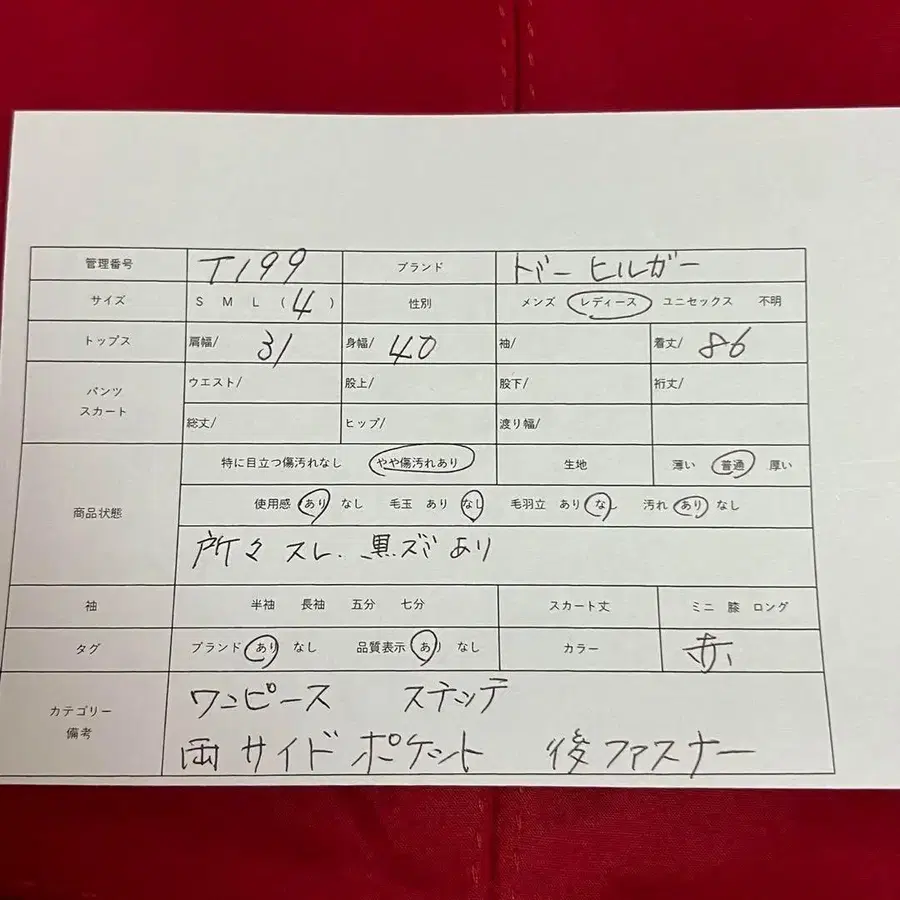 管理番号 T199 ブランド トバー ヒルガー
サイズ S M L ( 4 ) 性別 メンズ レディース ユニセックス 不明
トップス 肩幅/ 31 身幅/ 40 袖/ 着丈/ 86
パンツ スカート ウエスト/ 股上/ 股下/ 裄丈/
総丈/ ヒップ/ 渡り幅/
商品状態 特に目立つ傷汚れなし やや傷汚れあり 生地 薄い 普通 厚い
使用感 あり なし 毛玉 あり なし 毛羽立 あり なし 汚れ あり なし
所々 スレ. 黒ズミ あり
袖 半袖 長袖 五分 七分 スカート丈 ミニ 膝 ロング
タグ ブランド あり なし 品質表示 あり なし カラー 赤
カテゴリー 備考 ワンピース ステッテ
両サイドポケット 後ファスナー